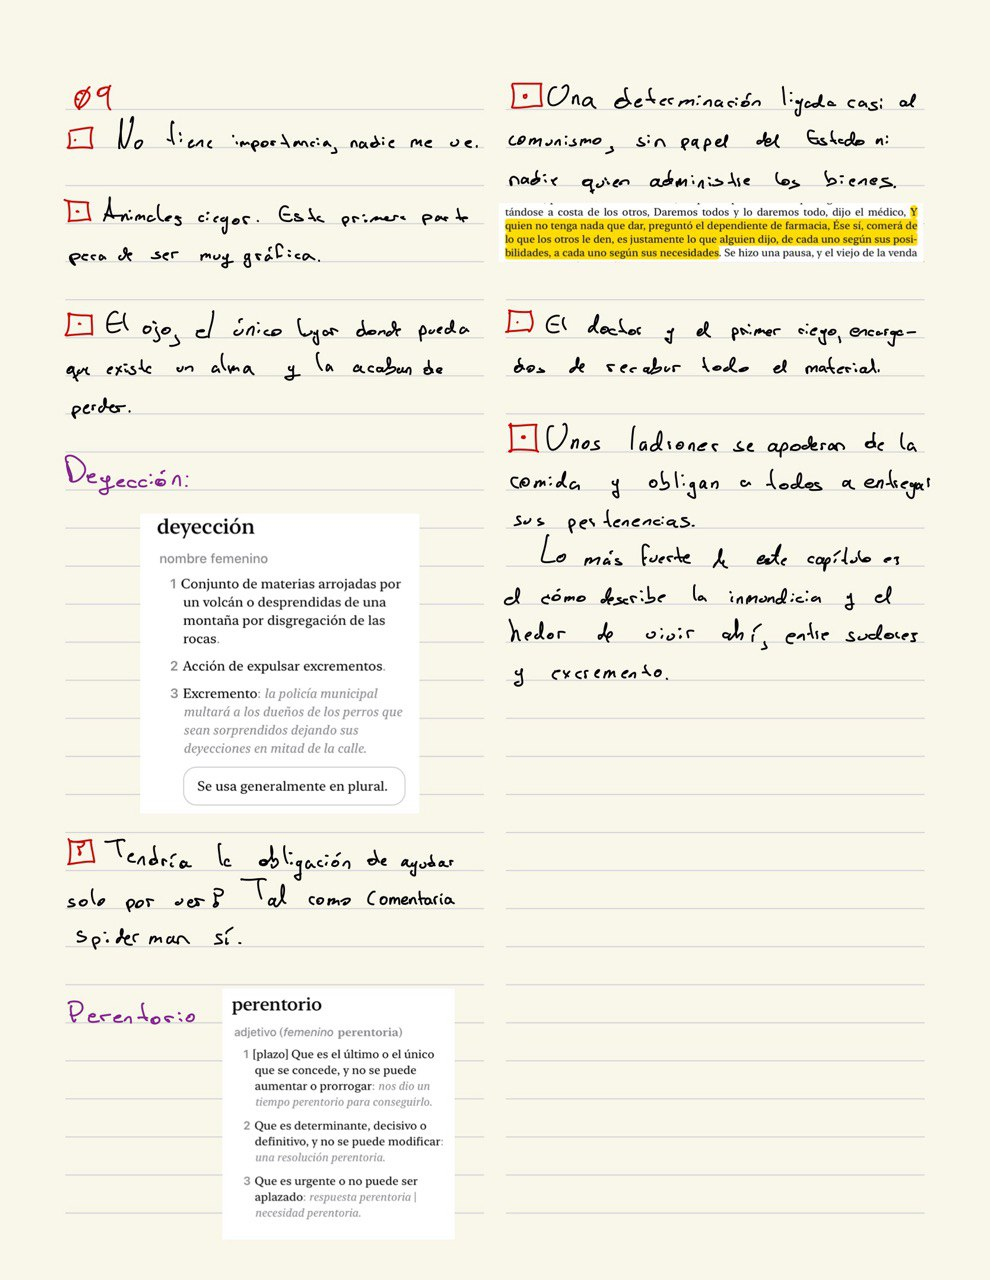 09
No tiene importancia, nadie me ve.
Animales ciegos. Esta primera parte
para de ser muy gráfica.
El ojo, el único lugar donde pueda
que existe un alma y la acaban de
perder.
Deyección:
deyección
nombre femenino
1 Conjunto de materias arrojadas por
un volcán o desprendidas de una
montaña por disgregación de las
rocas.
2 Acción de expulsar excrementos.
3 Excremento: la policía municipal
multará a los dueños de los perros que
sean sorprendidos dejando sus
deyecciones en mitad de la calle.
Se usa generalmente en plural.
? Tendría la obligación de ayudar
solo por ver? Tal como Comentaria
Spiderman sí.
Perentorio
perentorio
adjetivo (femenino perentoria)
1 [plazo] Que es el último o el único
que se concede, y no se puede
aumentar o prorrogar: nos dio un
tiempo perentorio para conseguirlo.
2 Que es determinante, decisivo o
definitivo, y no se puede modificar:
una resolución perentoria.
3 Que es urgente o no puede ser
aplazado: respuesta perentoria |
necesidad perentoria.
Una determinación ligada casi al
comunismo, sin papel del Estado ni
nadie quien administre los bienes.
tándose a costa de los otros, Daremos todos y lo daremos todo, dijo el médico, Y
quien no tenga nada que dar, preguntó el dependiente de farmacia, Ése sí, comerá de
lo que los otros le den, es justamente lo que alguien dijo, de cada uno según sus posi-
bilidades, a cada uno según sus necesidades. Se hizo una pausa, y el viejo de la venda
El doctor y el primer ciego, encarga-
dos de recabar todo el material.
Unos ladrones se apoderan de la
comida y obligan a todos a entregar
sus pertenencias.
Lo más fuerte de este capítulo es
el cómo describe la inmundicia y el
hedor de vivir ahí, entre sudores
y excremento.